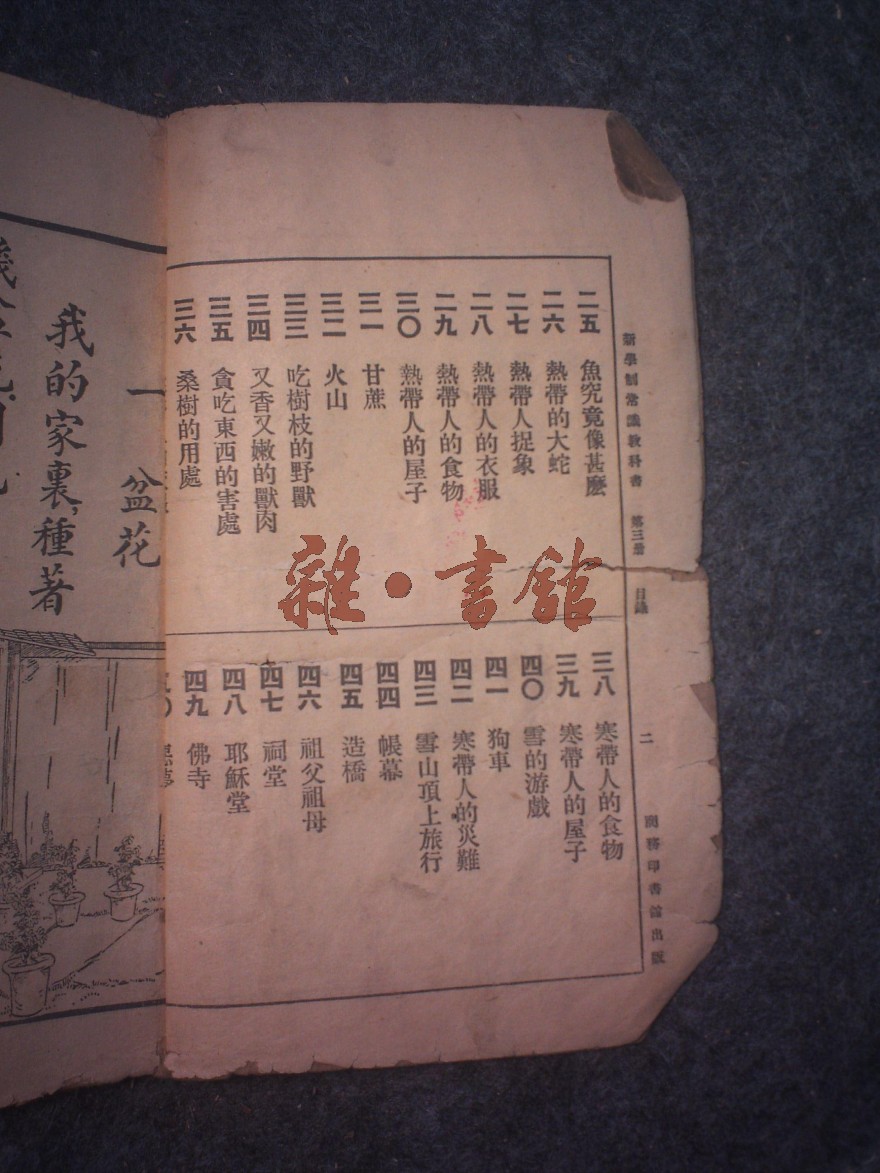 新學制常識教科書 第三册 目錄 二 商務印書館出版
二五 魚究竟像甚麽
二六 熱帶的大蛇
二七 熱帶人捉象
二八 熱帶人的衣服
二九 熱帶人的食物
三〇 熱帶人的屋子
三一 甘蔗
三二 火山
三三 吃樹枝的野獸
三四 又香又嫩的獸肉
三五 貪吃東西的害處
三六 桑樹的用處
三八 寒帶人的食物
三九 寒帶人的屋子
四〇 雪的游戲
四一 狗車
四二 寒帶人的災難
四三 雪山頂上旅行
四四 帳幕
四五 造橋
四六 祖父祖母
四七 祠堂
四八 耶穌堂
四九 佛寺
雜·書館
一 盆花
我的家裏,種著